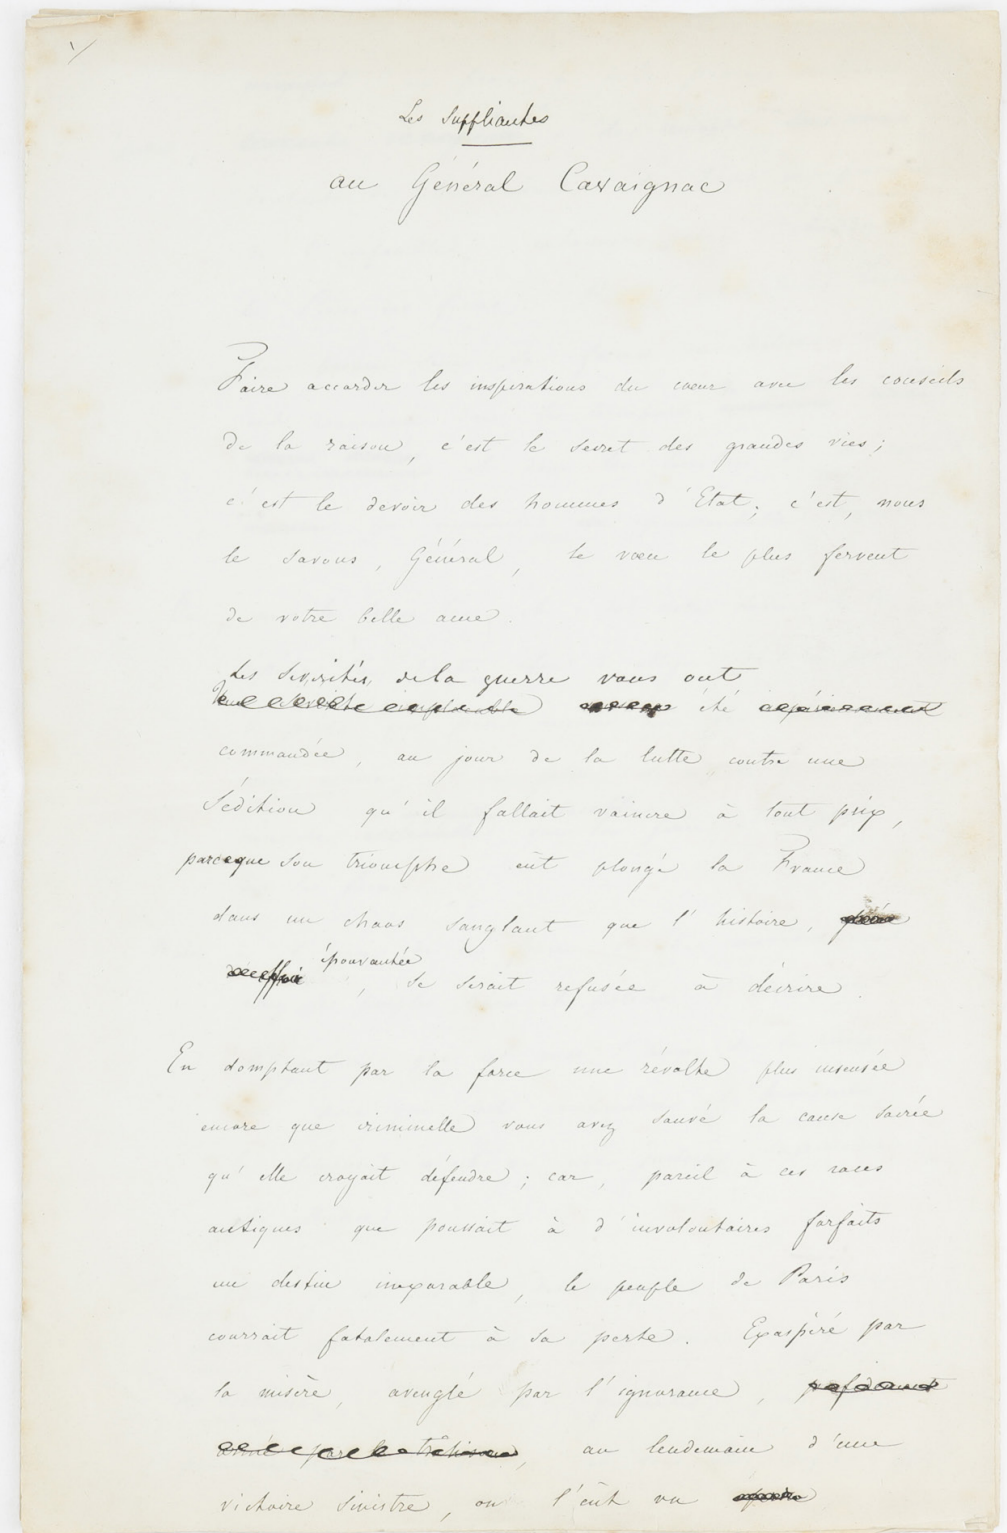 1/
Les Suppliantes
au Général Cavaignac
Faire accorder les inspirations du cœur avec les conseils
de la raison, c'est le secret des grandes vies ;
c'est le devoir des hommes d'Etat ; c'est, nous
le savons, Général, le vœu le plus fervent
de votre belle ame.
Les sévérités de la guerre vous ont
été
commandée, au jour de la lutte contre une
Sédition qu'il fallait vaincre à tout prix,
parceque son triomphe eût plongé la France
dans un chaos sanglant que l'histoire,
épouvantée
, se serait refusée à décrire.
En domptant par la force une révolte plus insensée
encore que criminelle vous avez sauvé la cause sacrée
qu'elle croyait défendre ; car, pareil à ces races
antiques que poussait à d'involontaires forfaits
un destin inexorable, le peuple de Paris
courrait fatalement à sa perte. Exaspéré par
la misère, aveuglé par l'ignorance,
, au lendemain d'une
victoire sinistre, on l'eût vu